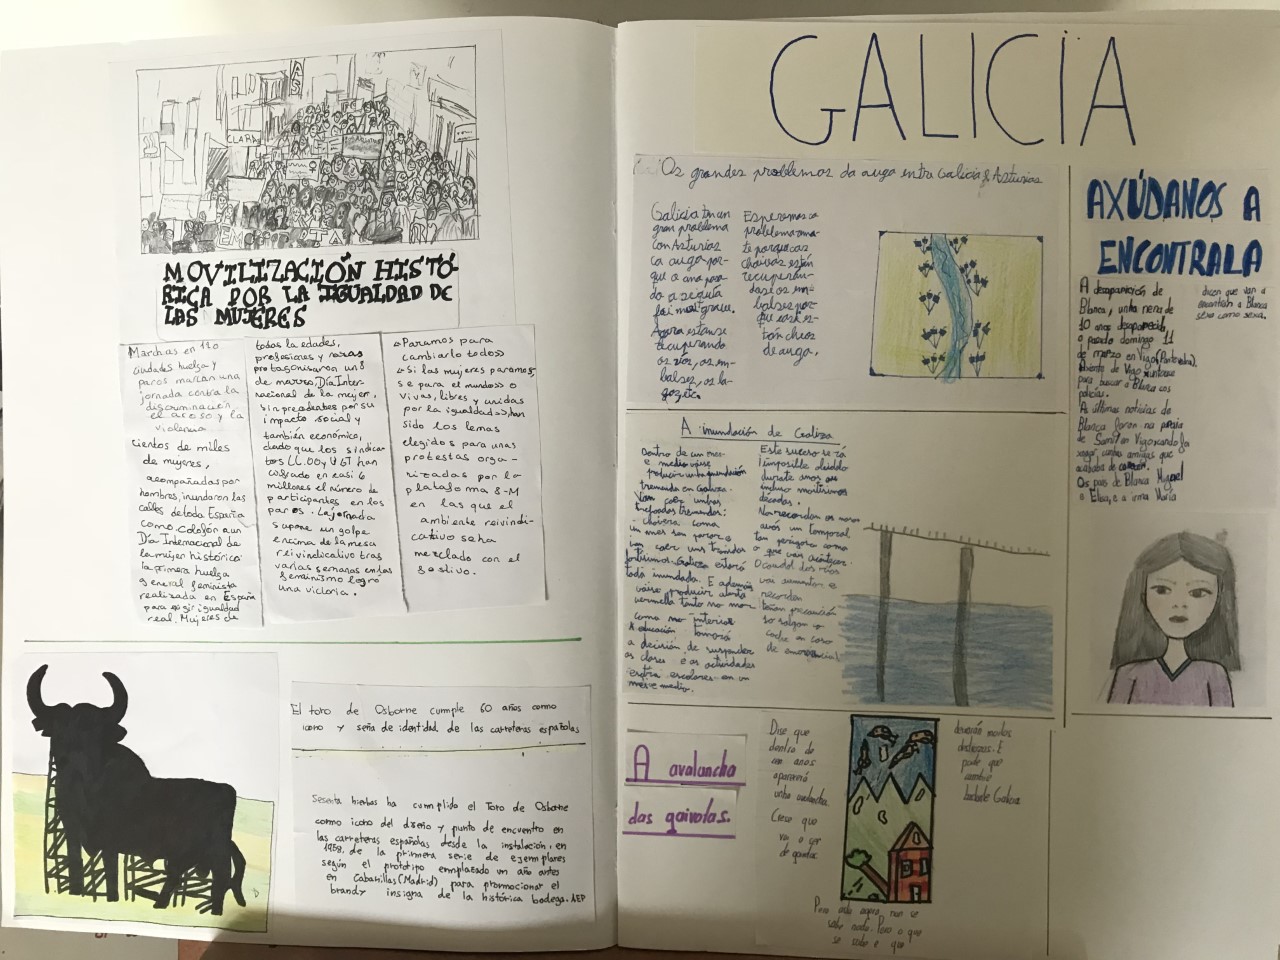 MOVILIZACIÓN HISTÓ-
RICA POR LA IGUALDAD DE
LAS MUJERES
Marchas en 120
ciudades huelga y
paros marcan una
jornada contra la
discriminación
el acoso y la
violencia
Cientos de miles
de mujeres,
acompañadas por
hombres, inundaron las
calles de toda España
como colofón a un
Día Internacional de
la mujer histórica:
la primera huelga
general feminista
realizada en España
para exigir igualdad
real. Mujeres de
todas la edades,
profesiones y razas
protagonizaron un 8
de marzo, Día Inter-
nacional de la mujer,
sin precedentes por su
impacto social y
también económico,
dado que los sindica-
tos CC.OO y UGT han
cifrado en casi 6
millones el número de
participantes en los
paros. La jornada
supone un golpe
encima de la mesa
reivindicativo tras
varias semanas en las
feminismo logró
una victoria.
«Paramos para
cambiarlo todo»
«Si las mujeres paramos,
se para el mundo» o
Vivas, libres y unidas
por la igualdad», han
sido los lemas
elegidos para unas
protestas orga-
nizadas por la
plataforma 8-M
en las que el
ambiente reivindi-
cativo se ha
mezclado con el
festivo.
El toro de Osborne cumple 60 años como
icono y seña de identidad de las carreteras españolas
ha cumplido el Toro de Osborne
como icono del diseño y punto de encuentro en
las carreteras españolas desde la instalación, en
1958, de la primera serie de ejemplares
según el prototipo emplazado un año antes
en Cabanillas (Madrid) para promocionar el
brandy insigna de la histórica bodega. AEP
GALICIA
Os grandes problemas da auga entre Galicia & Asturias
Galicia ten un
gran problema
con Asturias
ca auga por-
que o ano pasa-
do a sequía
foi moi grave.
Agora estanse
recuperando
os ríos, os em-
balses, os la-
gos, etc.
Esperemos co
problema rema-
te porque cas
choivas están
recuperán-
dase os em-
balses por-
que xa es-
tán cheos
de auga.
A inundación de Galiza
Dentro de un mes
e medio vaise
producir unha inundación
tremenda en Galiza.
Van caer unhas
tremendas:
choivera como
un mes sen parar e
van caer uns
Galiza estará
toda inundada. E ademais
vaise producir alerta
vermella tanto no mar
como no interior.
A educación tomará
a decisión de suspender
as clases e as actividades
extra escolares en un
mes e medio.
Este suceso será
imposible
durante anos ou
incluso moitísimas
décadas.
Non recordan os nosos
avós un temporal
tan perigoso como
o que vai acontecer.
O caudal dos ríos
vai aumentar e
recorden
precaución
caso
de emerxencia!
AXÚDANOS A
ENCONTRALA
A desaparición de
Blanca, unha nena de
10 anos desaparecida
o pasado domingo 11
de marzo en Vigo (Pontevedra).
Xente de Vigo xuntouse
para buscar a Blanca cos
policías.
As últimas noticias de
Blanca foron na praia
de Samil en Vigo xogando
cunhas amigas que
acababa de coñecer.
Os pais de Blanca Miguel
e Elisa, e a irmá María
dicen que van a
encontrar a Blanca
sexa como sexa.
A avalancha
das gaivotas.
Dise que
dentro de
cen anos
aparecerá
unha avalancha.
Crese que
van a ser
de gaivotas
Pero ata agora non se
sabe nada. Pero o que
se sabe é que
deixarán moitos
destrozos. E
pode que
cambie
toda Galicia